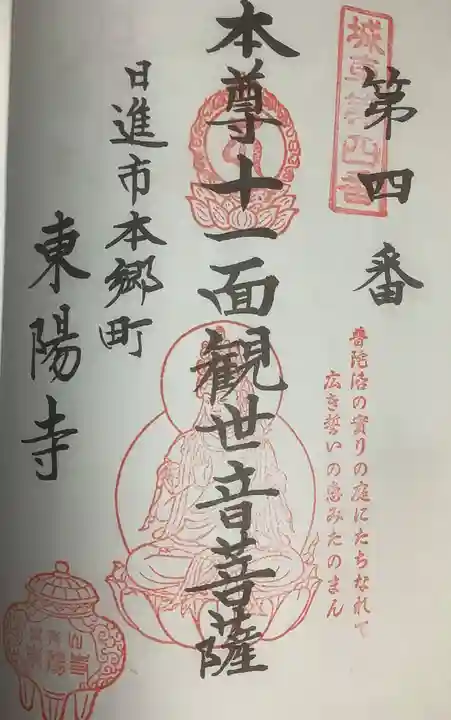 城東第四番
第四番
普陀洛の實りの庭にたちなれて
広き誓いの恵みたのまん
本尊十一面観世音菩薩
日進市本郷町
東陽寺